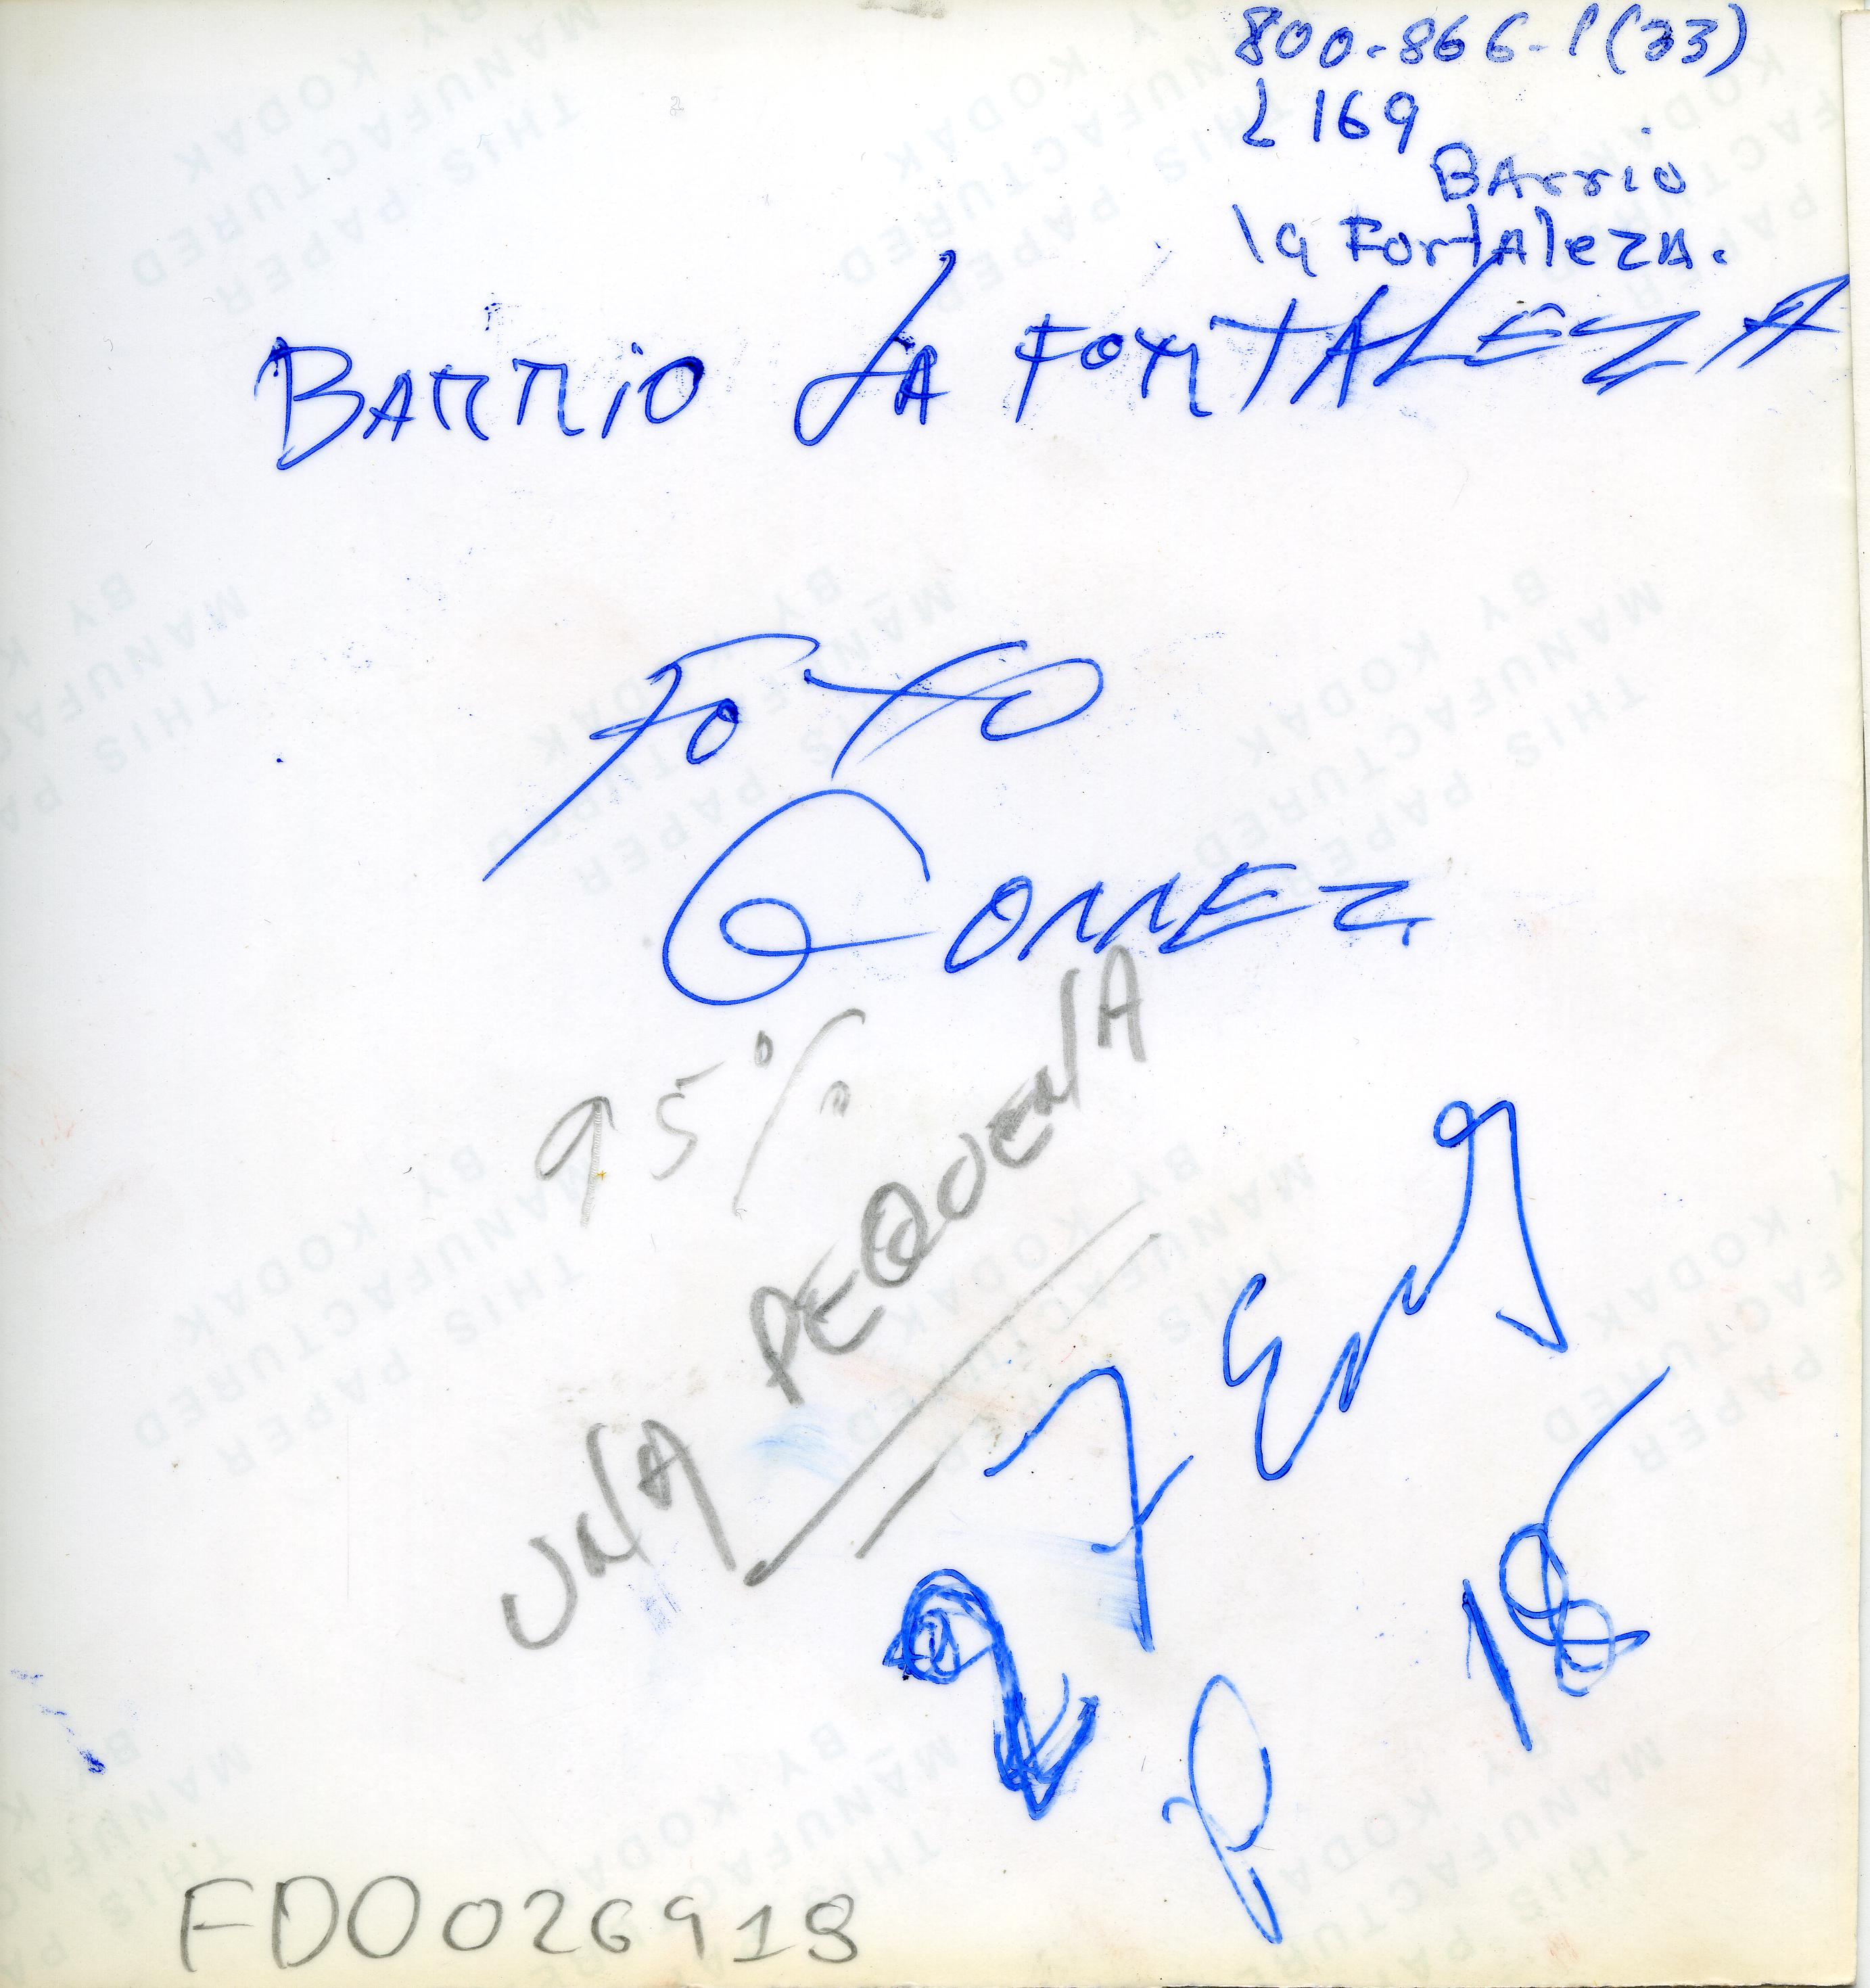 800-866-1(33)
L 169
BArrio
la FortAlezA.
BARRIO LA FORTALEZA
FOTO
GOMEZ
95%
UNA PEQUEÑA
27 Eng
P 18
FDO026918
THIS PAPER
MANUFACTURED
BY KODAK